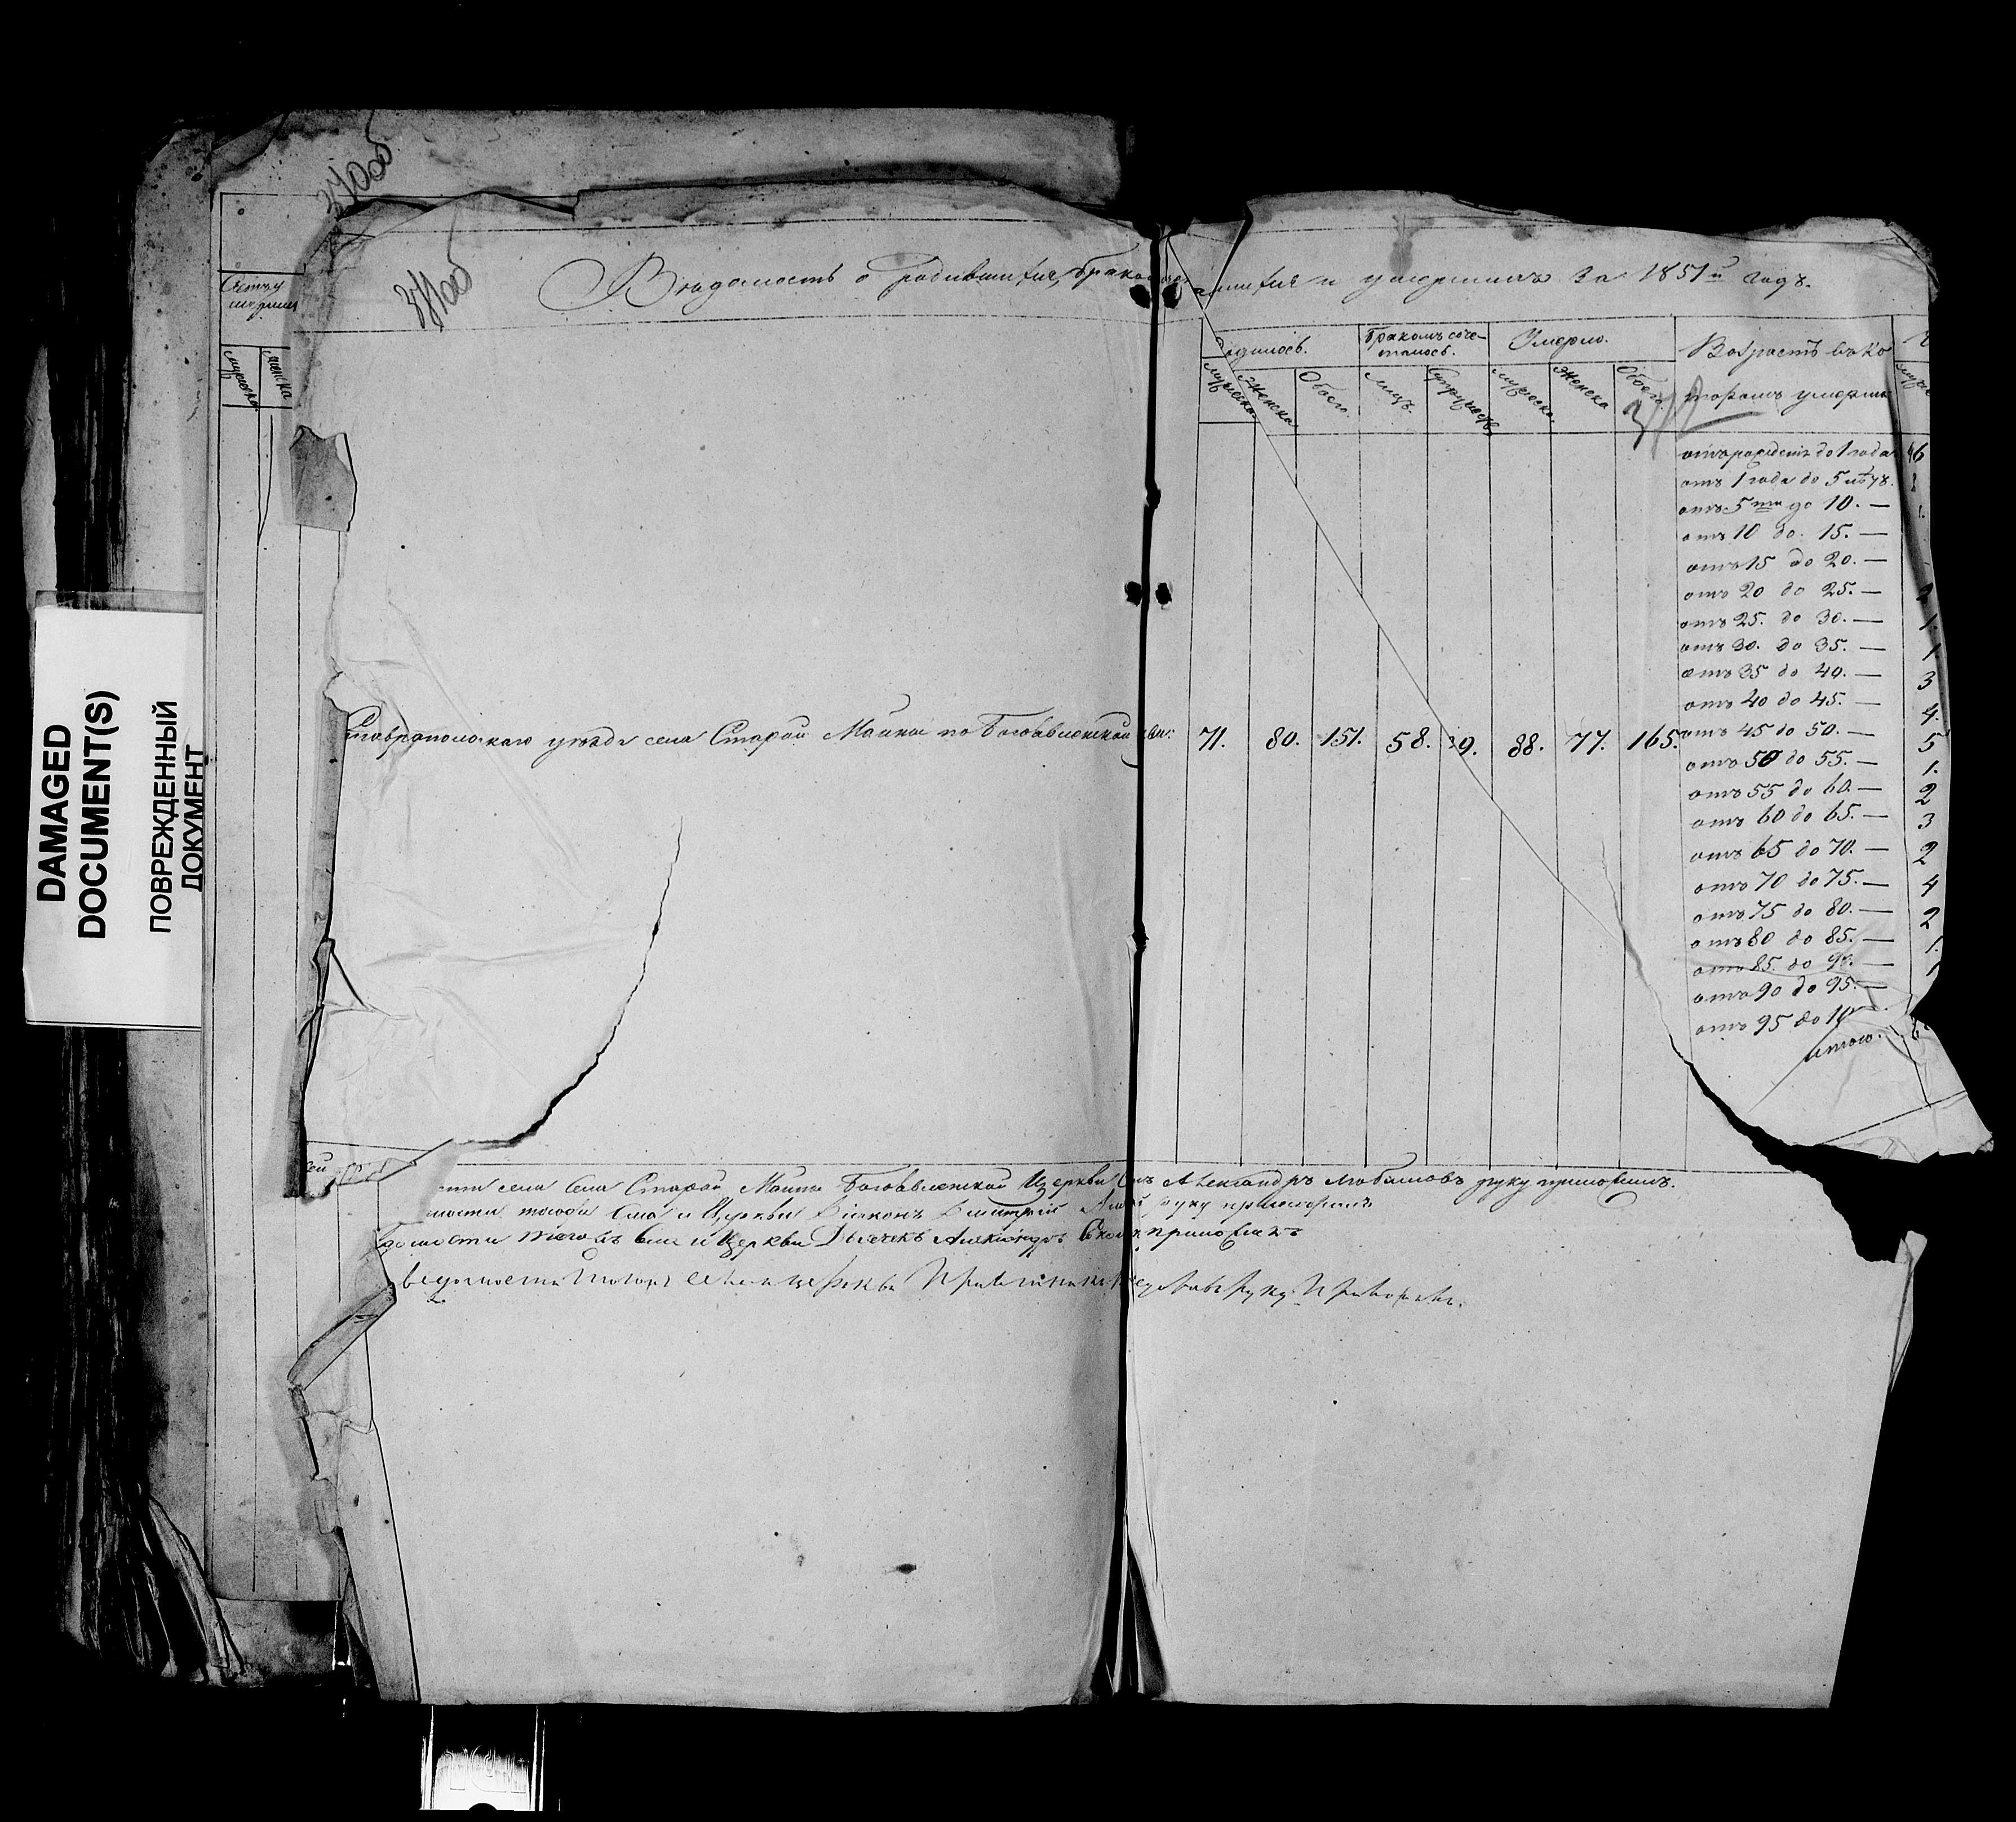 DAMAGED
DOCUMENT(S)
ПОВРЕЖДЕННЫЙ
ДОКУМЕНТ
370об
371об
Вѣдомость о родившихся, бракосочетавшихся и умершихъ за 1851й годъ.
Счетъ умершихъ
мужеска
женска
Родилось.
Бракомъ соче-
талось.
Умерло.
Возрастъ въ ко
торомъ умерли
мужеска
Женска
Обоего.
лицъ.
Супружествъ
мужеска
Женска
Обоего.
отъ рожденія до 1 года 46
отъ 1 года до 5 лѣтъ.
отъ 5ти до 10. —
отъ 10 до 15. —
отъ 15 до 20. —
отъ 20 до 25. — 2
отъ 25. до 30. — 1.
отъ 30. до 35. — 1
отъ 35 до 40. — 3
отъ 40 до 45. — 4.
Ставропольскаго уѣзда села Старой Майны по Богоявленской цви: 71. 80. 151. 58. 29. 88. 77. 165.
отъ 45 до 50. — 5
отъ 50 до 55. — 1.
отъ 55 до 60. — 2
отъ 60 до 65. — 3
отъ 65 до 70. — 2
отъ 70 до 75. — 4
отъ 75 до 80. — 2
отъ 80 до 85. — 1.
отъ 85. до 90. — 1
отъ 90 до 95. —
отъ 95 до
итого.
сей
села Села Старой Майны Богоявленской Церкви Александръ Любимовъ руку приложилъ.
тогоже Села и Церкви Діаконъ Димитрій руку приложилъ
домости тогожъ села и Церкви Дьячекъ Александръ приложилъ
ведомости тогожъ села и церкви руку приложилъ.